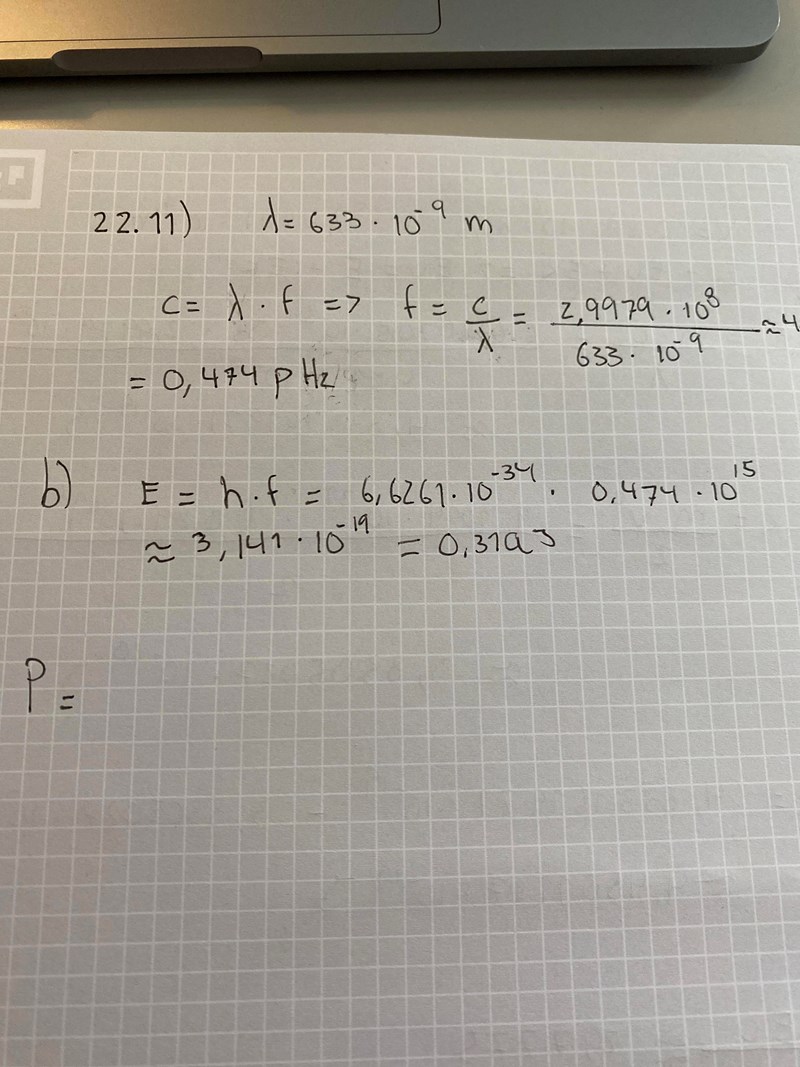 22.11) λ = 633 · 10⁻⁹ m
c = λ · f => f = c/λ = 2,9979 · 10⁸ / 633 · 10⁻⁹ ≈ 4
= 0,474 pHz
b) E = h · f = 6,6261 · 10⁻³⁴ · 0,474 · 10¹⁵
≈ 3,141 · 10⁻¹⁹ = 0,31aJ
P =